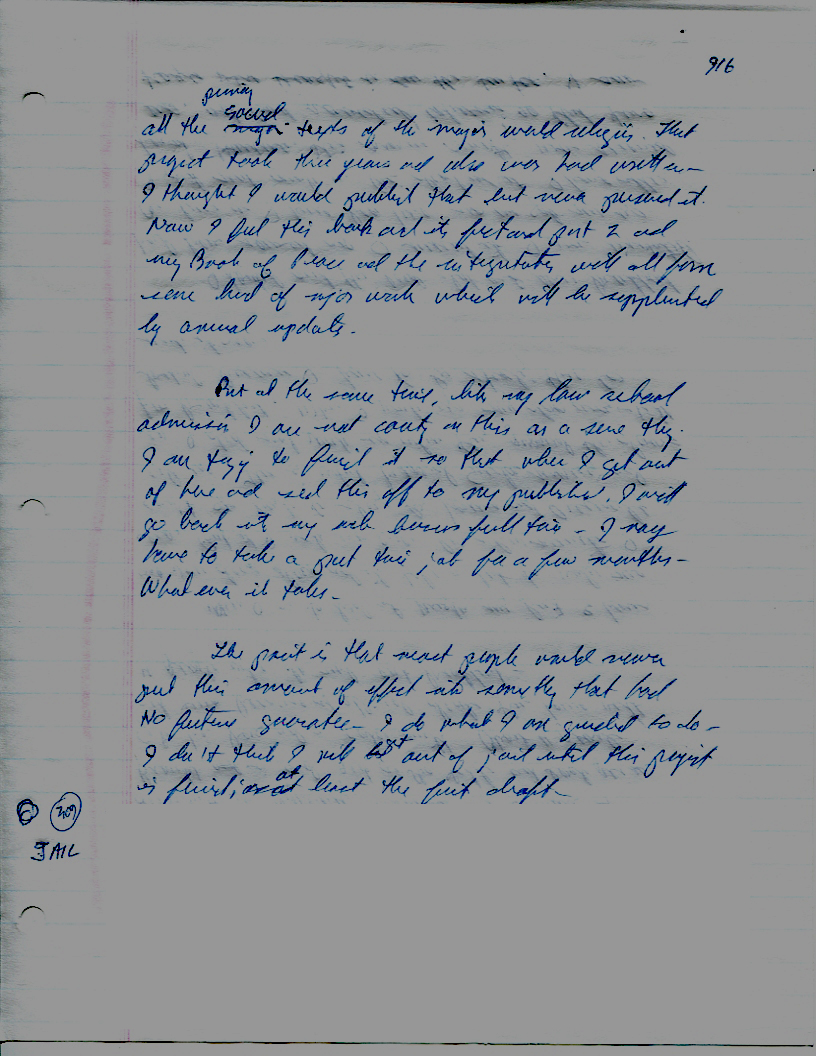 916
primary
sacred
all the major texts of the major world religions. That
project took three years and also was hand written—
I thought I would publish that but never pursued it.
Now I feel this book and its part 2 and
my Book of Peace and the will all form
some kind of major work which will be supplemented
by annual updates.
But at the same time, like my law school
admission I am not counting on this as a sure thing.
I am trying to finish it so that when I get out
of here and send this off to my publisher, I will
go back into my web business full time — I may
have to take a part time job for a few months—
Whatever it takes—
The point is that most people would never
put this amount of effort into something that had
No future guarantee— I do what I am guided to do—
I don't think I will get out of jail until this project
is finished, or at least the first draft—
6 309
JAIL